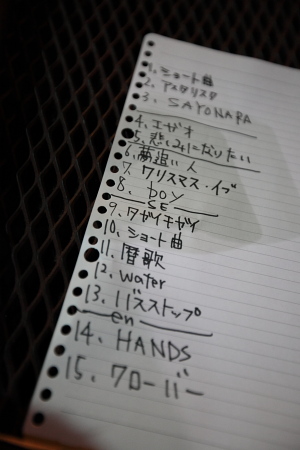 1. ショート曲
2. アスタリスク
3. SAYONARA
4. エガオ
5. 悲しみになりたい
6. 夢追い人
7. クリスマス・イブ
8. boy
SE
9. ワガイキガイ
10. ショート曲
11. 暦歌
12. water
13. バスストップ
en
14. HANDS
15. クローバー